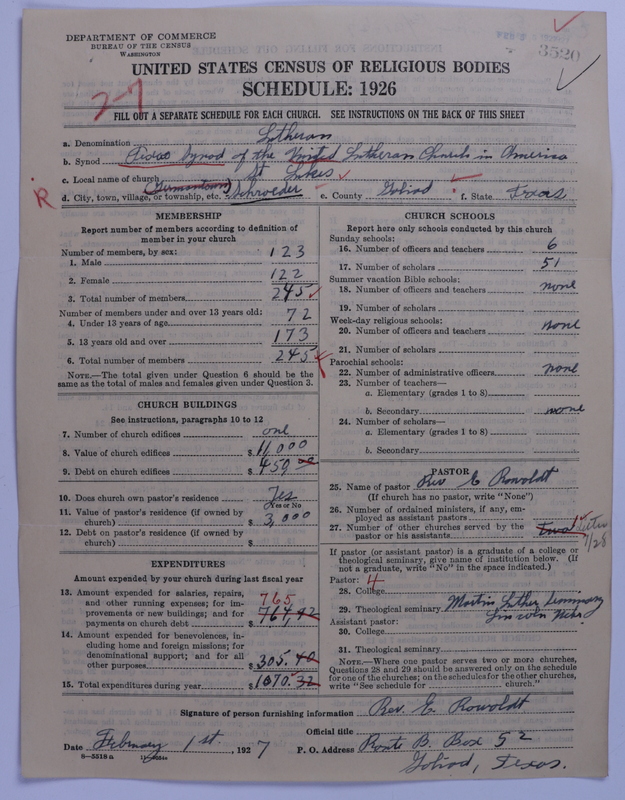 DEPARTMENT OF COMMERCE
BUREAU OF THE CENSUS
WASHINGTON
3520
UNITED STATES CENSUS OF RELIGIOUS BODIES
SCHEDULE: 1926
2-7
FILL OUT A SEPARATE SCHEDULE FOR EACH CHURCH. SEE INSTRUCTIONS ON THE BACK OF THIS SHEET
a. Denomination Lutheran
b. Synod Texas Synod of the United Lutheran Church in America
c. Local name of church St Lukes
R
d. City, town, village, or township, etc. (Germantown) Schroeder e. County Goliad f. State Texas
MEMBERSHIP
Report number of members according to definition of member in your church
Number of members, by sex:
1. Male 123
2. Female 122
3. Total number of members 245
Number of members under and over 13 years old:
4. Under 13 years of age 72
5. 13 years old and over 173
6. Total number of members 245
NOTE.—The total given under Question 6 should be the same as the total of males and females given under Question 3.
CHURCH BUILDINGS
See instructions, paragraphs 10 to 12
7. Number of church edifices one
8. Value of church edifices $ 11,000
9. Debt on church edifices $ 459
10. Does church own pastor's residence Yes
Yes or No
11. Value of pastor's residence (if owned by church) $ 3,000
12. Debt on pastor's residence (if owned by church) $
EXPENDITURES
Amount expended by your church during last fiscal year
13. Amount expended for salaries, repairs, and other running expenses; for improvements or new buildings; and for payments on church debt 765 $ 764,92
14. Amount expended for benevolences, including home and foreign missions; for denominational support; and for all other purposes $ 305.40
15. Total expenditures during year $ 1070.32
CHURCH SCHOOLS
Report here only schools conducted by this church
Sunday schools:
16. Number of officers and teachers 6
17. Number of scholars 51
Summer vacation Bible schools:
18. Number of officers and teachers none
19. Number of scholars
Week-day religious schools:
20. Number of officers and teachers none
21. Number of scholars
Parochial schools:
22. Number of administrative officers none
23. Number of teachers—
a. Elementary (grades 1 to 8)
b. Secondary none
24. Number of scholars—
a. Elementary (grades 1 to 8)
b. Secondary
PASTOR
25. Name of pastor Rev E Rowoldt
(If church has no pastor, write "None")
26. Number of ordained ministers, if any, employed as assistant pastors
27. Number of other churches served by the pastor or his assistants
1/28
If pastor (or assistant pastor) is a graduate of a college or theological seminary, give name of institution below. (If not a graduate, write "No" in the space indicated.)
Pastor: 4
28. College
29. Theological seminary Martin Luther Seminary
Lincoln Nebr.
Assistant pastor:
30. College
31. Theological seminary
NOTE.—Where one pastor serves two or more churches, Questions 28 and 29 should be answered only on the schedule for one of the churches; on the schedules for the other churches, write "See schedule for church."
Signature of person furnishing information Rev. E. Rowoldt
Official title
Date February 1st., 1927 P. O. Address Route B. Box 52
8—5518 a
Goliad, Texas.